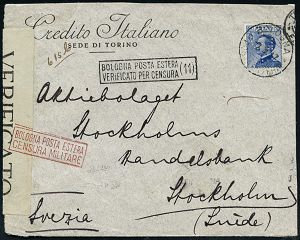 Credito Italiano
SEDE DI TORINO
BOLOGNA POSTA ESTERA
VERIFICATO PER CENSURA (11)
VERIFICATO
Aktiebolaget
Stockholms
Handelsbank
BOLOGNA POSTA ESTERA
CENSURA MILITARE
Stockholm
Svezia
(Suède)